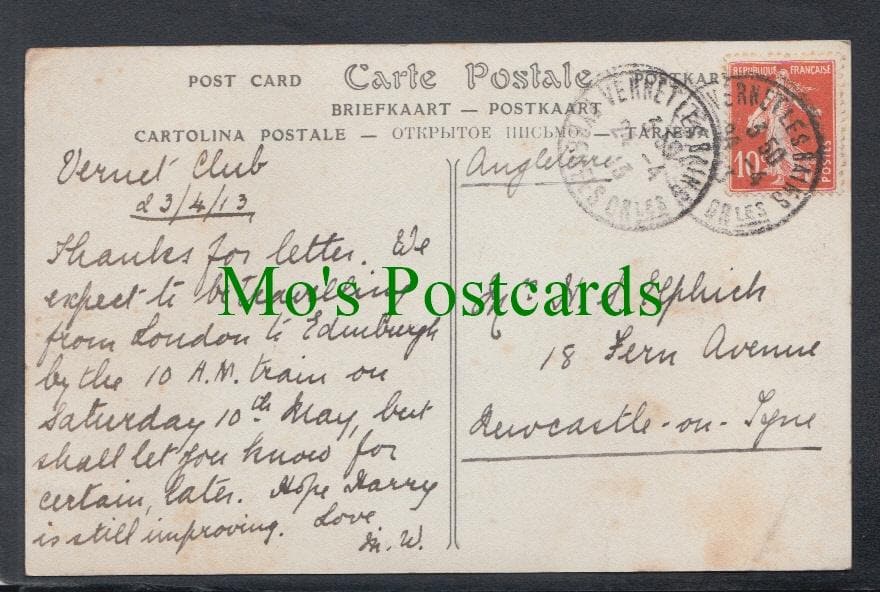 POST CARD Carte Postale POSTKAR
BRIEFKAART — POSTKAART
CARTOLINA POSTALE — ОТКРЫТОЕ ПИСЬМО — TARJETA
Vernet Club
23/4/13
Thanks for letter. We
expect to be travelling
from London to Edinburgh
by the 10 A.M. train on
Saturday 10th May, but
shall let you know for
certain, later. Hope Harry
is still improving. Love
M. W.
Angleterre
18 Fern Avenue
Newcastle-on-Tyne
REPUBLIQUE FRANÇAISE
10c
POSTES
VERNET LES BAINS
3 50
-4
13
ORLES
VERNET LES BAINS
3 50
-4
ORLES
Mo's Postcards